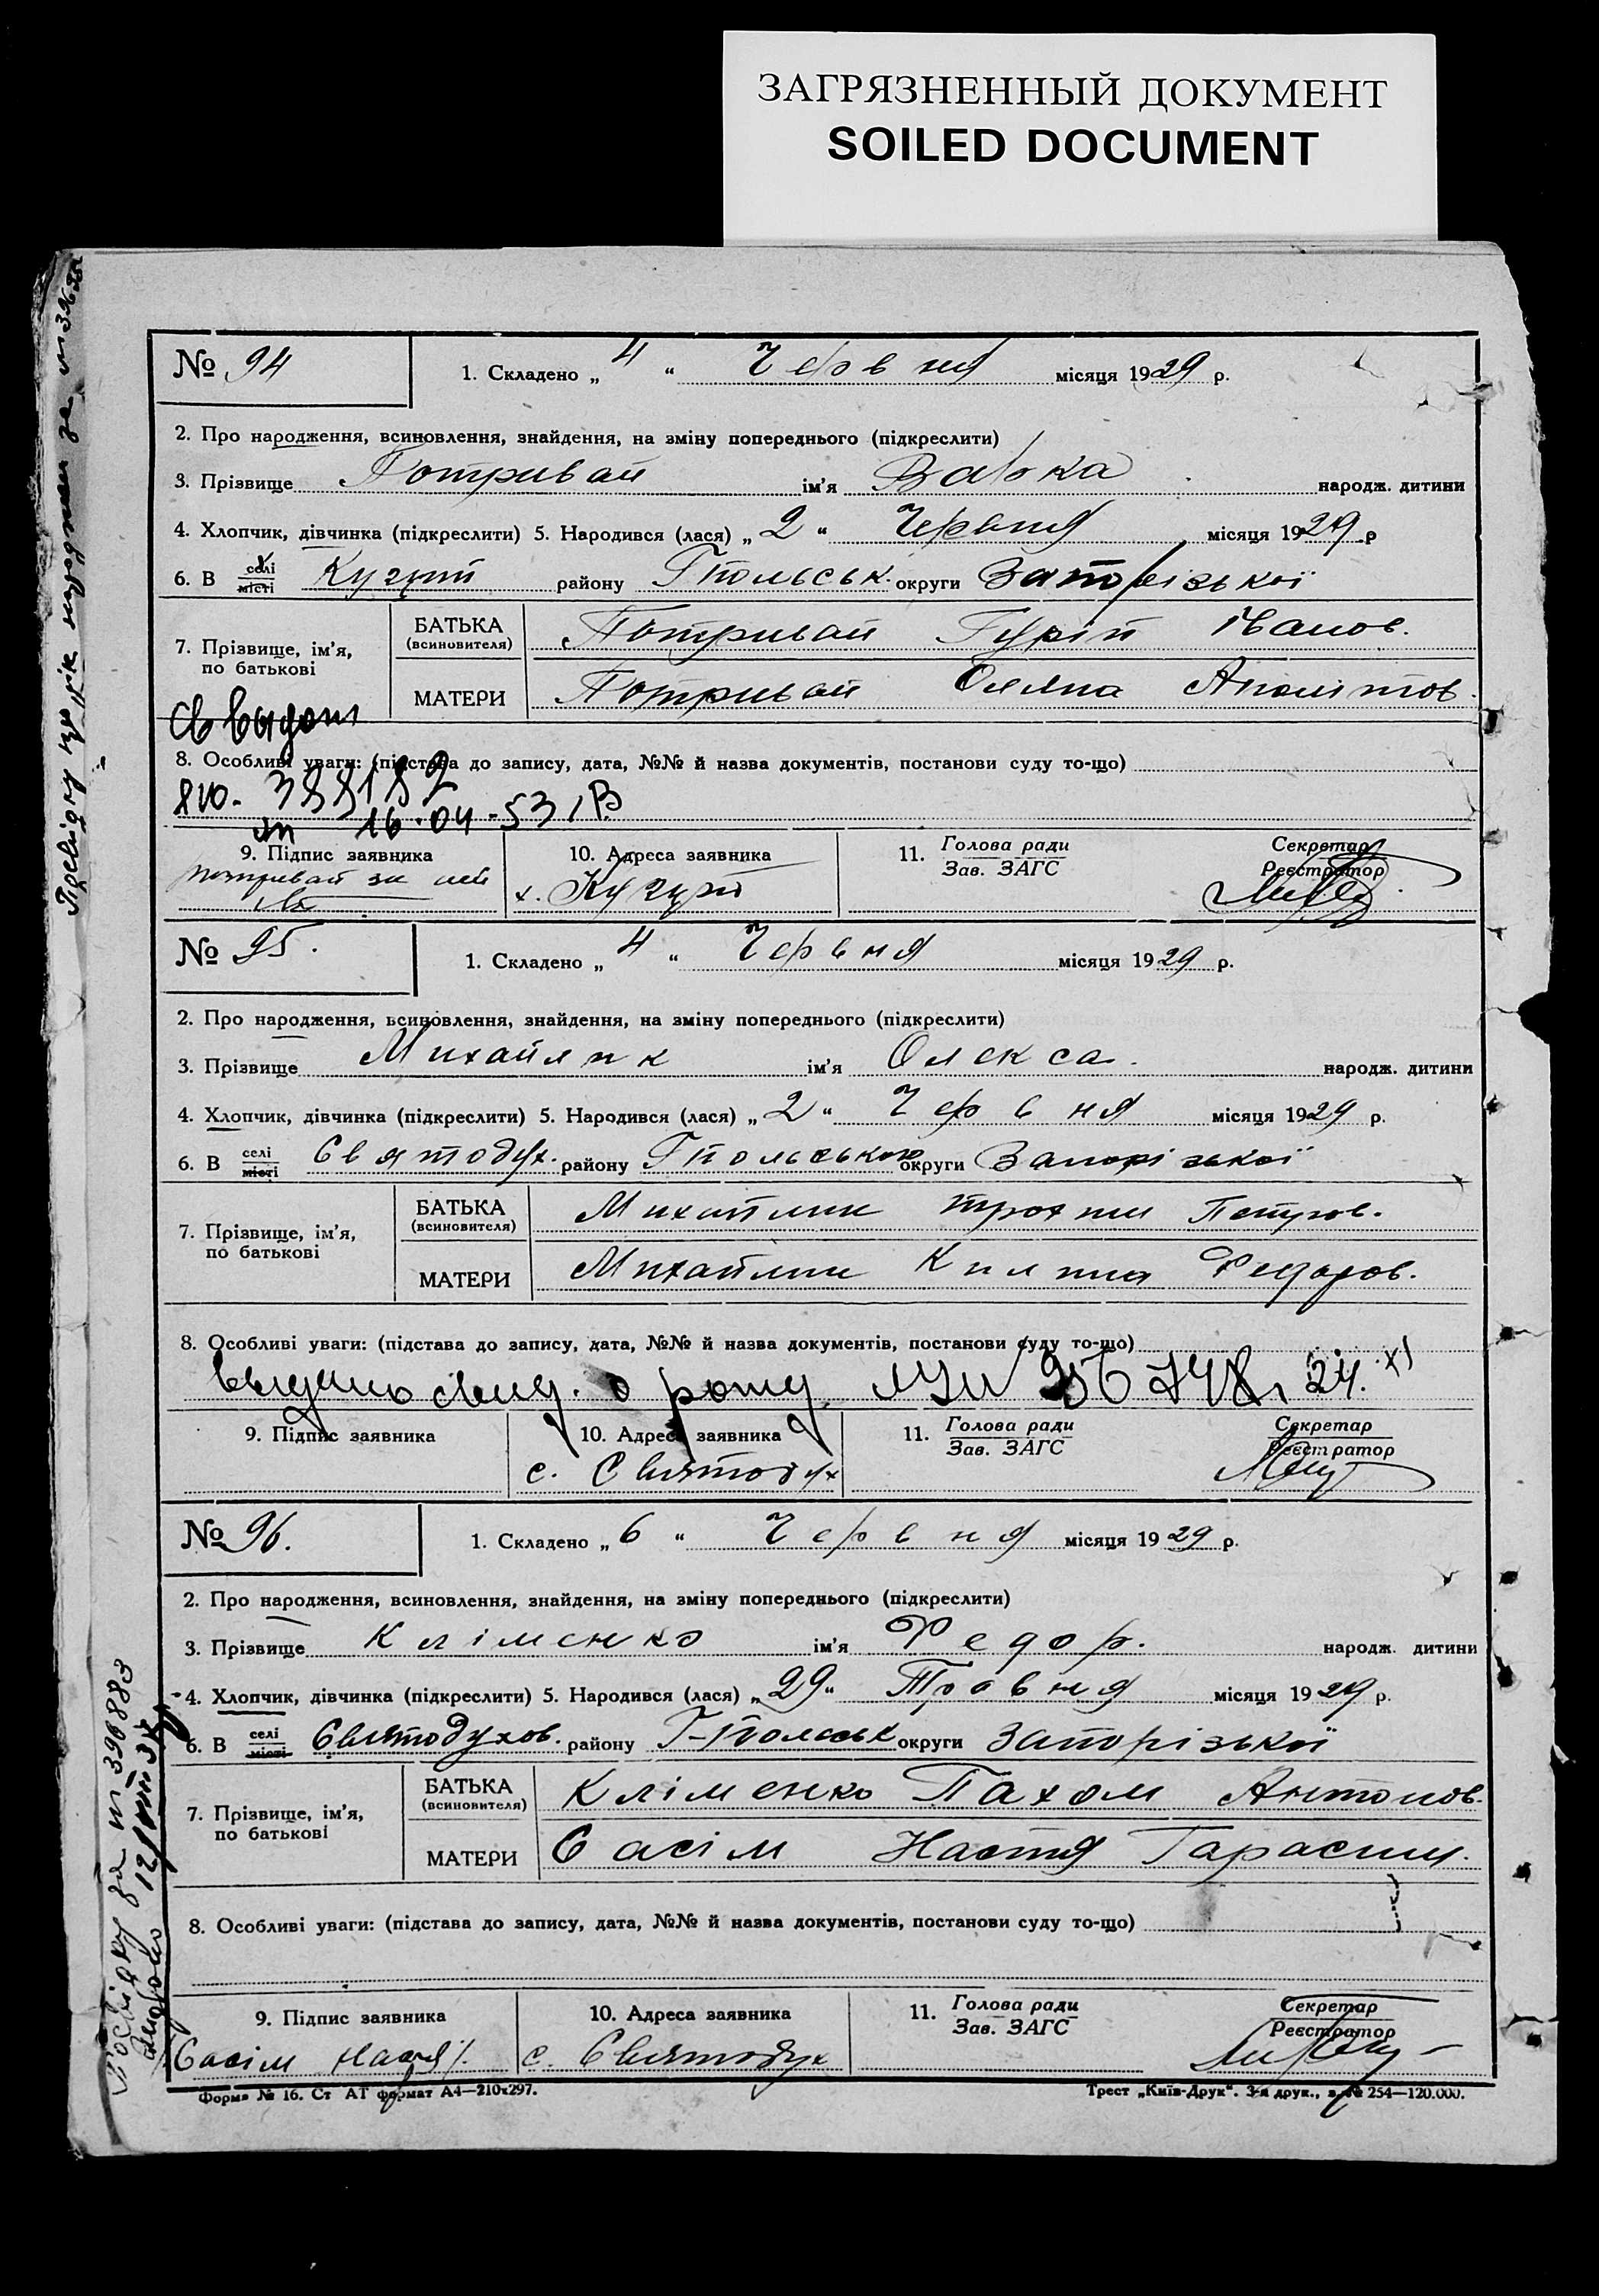 ЗАГРЯЗНЕННЫЙ ДОКУМЕНТ
SOILED DOCUMENT
№ 94
1. Складено „ 4 “ Червня місяця 1929 р.
2. Про народження, всиновлення, знайдення, на зміну попереднього (підкреслити)
3. Прізвище Потривай ім'я Варка народж. дитини
4. Хлопчик, дівчинка (підкреслити) 5. Народився (лася) „ 2 “ Червня місяця 1929 р
6. В селі місті району Гпольськ. округи Запорізької
7. Прізвище, ім'я, по батькові
БАТЬКА (всиновителя) Потривай Гурій Іванов.
МАТЕРИ Потривай Оляна
8. Особливі уваги: (підстава до запису, дата, №№ й назва документів, постанови суду то-що)
388182
16.04.53
9. Підпис заявника
Потривай
10. Адреса заявника
х.
11. Голова ради
Зав. ЗАГС
Секретар
Реєстратор
№ 95.
1. Складено „ 4 “ Червня місяця 1929 р.
2. Про народження, всиновлення, знайдення, на зміну попереднього (підкреслити)
3. Прізвище Михайлик ім'я Олекса. народж. дитини
4. Хлопчик, дівчинка (підкреслити) 5. Народився (лася) „ 2 “ Червня місяця 1929 р.
6. В селі місті Святодух. району Гпольського округи Запорізької
7. Прізвище, ім'я, по батькові
БАТЬКА (всиновителя) Михайлик Трохим Петров.
МАТЕРИ Михайлик Килина Федоров.
8. Особливі уваги: (підстава до запису, дата, №№ й назва документів, постанови суду то-що)
9. Підпис заявника
10. Адреса заявника
с. Святодух
11. Голова ради
Зав. ЗАГС
Секретар
Реєстратор
№ 96.
1. Складено „ 6 “ Червня місяця 1929 р.
2. Про народження, всиновлення, знайдення, на зміну попереднього (підкреслити)
3. Прізвище Кліменко ім'я Федор. народж. дитини
4. Хлопчик, дівчинка (підкреслити) 5. Народився (лася) „ 29 “ Травня місяця 1929 р.
6. В селі місті Святодухов. району Г-Польськ округи Запорізької
7. Прізвище, ім'я, по батькові
БАТЬКА (всиновителя) Кліменко Пахом Антонов.
МАТЕРИ Сасім Настя Гарасим.
8. Особливі уваги: (підстава до запису, дата, №№ й назва документів, постанови суду то-що)
9. Підпис заявника
Сасім
10. Адреса заявника
с. Святодух
11. Голова ради
Зав. ЗАГС
Секретар
Реєстратор
Форма № 16. Ст АТ формат А4—210x297.
Трест „Київ-Друк“. 3-я друк., з. № 254—120.000.